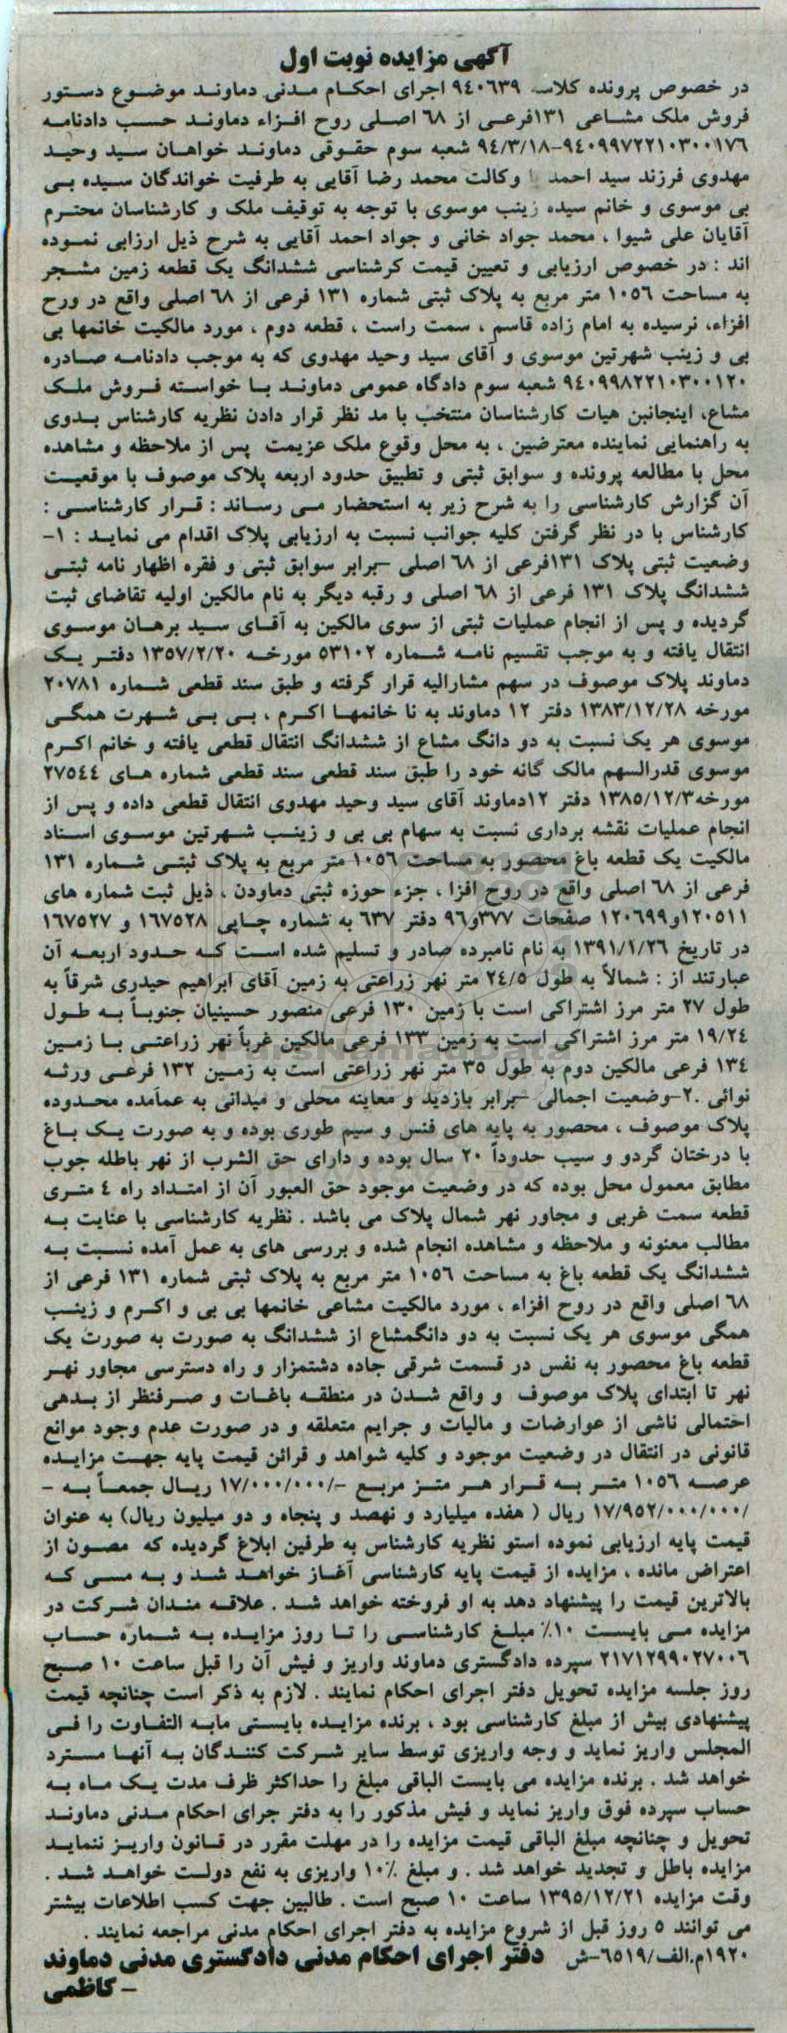 آگهی مزایده نوبت اول
در خصوص پرونده کلاسه ۹۴۰۶۳۹ اجرای احکام مدنی دماوند موضوع دستور
فروش ملک مشاعی ۱۳۱فرعی از ۶۸ اصلی روح افزاء دماوند حسب دادنامه
۹۴۰۹۹۷۲۲۱۰۳۰۰۱۷۶-۹۴/۳/۱۸ شعبه سوم حقوقی دماوند خواهان سید وحید
مهدوی فرزند سید احمد با وکالت محمد رضا آقایی به طرفیت خواندگان سیده بی
بی موسوی و خانم سیده زینب موسوی با توجه به توقیف ملک و کارشناسان محترم
آقایان علی شیوا ، محمد جواد خانی و جواد احمد آقایی به شرح ذیل ارزابی نموده
اند : در خصوص ارزیابی و تعیین قیمت کرشناسی ششدانگ یک قطعه زمین مشجر
به مساحت ۱۰۵۶ متر مربع به پلاک ثبتی شماره ۱۳۱ فرعی از ۶۸ اصلی واقع در ورح
افزاء، نرسیده به امام زاده قاسم ، سمت راست ، قطعه دوم ، مورد مالکیت خانمها بی
بی و زینب شهرتین موسوی و آقای سید وحید مهدوی که به موجب دادنامه صادره
۹۴۰۹۹۸۲۲۱۰۳۰۰۱۲۰ شعبه سوم دادگاه عمومی دماوند با خواسته فروش ملک
مشاع، اینجانبن هیات کارشناسان منتخب با مد نظر قرار دادن نظریه کارشناس بدوی
به راهنمایی نماینده معترضین ، به محل وقوع ملک عزیمت پس از ملاحظه و مشاهده
محل با مطالعه پرونده و سوابق ثبتی و تطبیق حدود اربعه پلاک موصوف با موقعیت
آن گزارش کارشناسی را به شرح زیر به استحضار می رساند : قرار کارشناسی :
کارشناس با در نظر گرفتن کلیه جوانب نسبت به ارزیابی پلاک اقدام می نماید : ۱-
وضعیت ثبتی پلاک ۱۳۱فرعی از ۶۸ اصلی –برابر سوابق ثبتی و فقره اظهار نامه ثبتی
ششدانگ پلاک ۱۳۱ فرعی از ۶۸ اصلی و رقبه دیگر به نام مالکین اولیه تقاضای ثبت
گردیده و پس از انجام عملیات ثبتی از سوی مالکین به آقای سید برهان موسوی
انتقال یافته و به موجب تقسیم نامه شماره ۵۳۱۰۲ مورخه ۱۳۵۷/۲/۲۰ دفتر یک
دماوند پلاک موصوف در سهم مشارالیه قرار گرفته و طبق سند قطعی شماره ۲۰۷۸۱
مورخه ۱۳۸۳/۱۲/۲۸ دفتر ۱۲ دماوند به نا خانمها اکرم ، بی بی شهرت همگی
موسوی هر یک نسبت به دو دانگ مشاع از ششدانگ انتقال قطعی یافته و خانم اکرم
موسوی قدرالسهم مالک گانه خود را طبق سند قطعی سند قطعی شماره های ۲۷۵۴۴
مورخه۱۳۸۵/۱۲/۳ دفتر ۱۲دماوند آقای سید وحید مهدوی انتقال قطعی داده و پس از
انجام عملیات نقشه برداری نسبت به سهام بی بی و زینب شهرتین موسوی اسناد
مالکیت یک قطعه باغ محصور به مساحت ۱۰۵۶ متر مربع به پلاک ثبتی شماره ۱۳۱
فرعی از ۶۸ اصلی واقع در روح افزا ، جزء حوزه ثبتی دماودن ، ذیل ثبت شماره های
۱۲۰۵۱۱و۱۲۰۶۹۹ صفحات ۳۷۷و۹۶ دفتر ۶۳۷ به شماره چاپی ۱۶۷۵۲۸ و ۱۶۷۵۲۷
در تاریخ ۱۳۹۱/۱/۲۶ به نام نامبرده صادر و تسلیم شده است که حدود اربعه آن
عبارتند از : شمالاً به طول ۲۴/۵ متر نهر زراعتی به زمین آقای ابراهیم حیدری شرقاً به
طول ۲۷ متر مرز اشتراکی است با زمین ۱۳۰ فرعی منصور حسینیان جنوباً به طول
۱۹/۲۴ متر مرز اشتراکی است به زمین ۱۳۳ فرعی مالکین غرباً نهر زراعتی با زمین
۱۳۴ فرعی مالکین دوم به طول ۳۵ متر نهر زراعتی است به زمین ۱۳۲ فرعی ورثه
نوائی .۲-وضعیت اجمالی –برابر بازدید و معاینه محلی و میدانی به عمآمده محدوده
پلاک موصوف ، محصور به پایه های فنس و سیم طوری بوده و به صورت یک باغ
با درختان گردو و سیب حدوداً ۲۰ سال بوده و دارای حق الشرب از نهر باطله جوب
مطابق معمول محل بوده که در وضعیت موجود حق العبور آن از امتداد راه ۴ متری
قطعه سمت غربی و مجاور نهر شمال پلاک می باشد . نظریه کارشناسی با عنایت به
مطالب معنونه و ملاحظه و مشاهده انجام شده و بررسی های به عمل آمده نسبت به
ششدانگ یک قطعه باغ به مساحت ۱۰۵۶ متر مربع به پلاک ثبتی شماره ۱۳۱ فرعی از
۶۸ اصلی واقع در روح افزاء ، مورد مالکیت مشاعی خانمها بی بی و اکرم و زینب
همگی موسوی هر یک نسبت به دو دانگمشاع از ششدانگ به صورت به صورت یک
قطعه باغ محصور به نفس در قسمت شرقی جاده دشتمزار و راه دسترسی مجاور نهر
نهر تا ابتدای پلاک موصوف و واقع شدن در منطقه باغات و صرفنظر از بدهی
احتمالی ناشی از عوارضات و مالیات و جرایم متعلقه و در صورت عدم وجود موانع
قانونی در انتقال در وضعیت موجود و کلیه شواهد و قرائن قیمت پایه جهت مزایده
عرصه ۱۰۵۶ متر به قرار هر متز مربع -/۱۷/۰۰۰/۰۰۰ ریال جمعاً به -
/۱۷/۹۵۲/۰۰۰/۰۰۰ ریال ( هفده میلیارد و نهصد و پنجاه و دو میلیون ریال) به عنوان
قیمت پایه ارزیابی نموده استو نظریه کارشناس به طرفین ابلاغ گردیده که مصون از
اعتراض مانده ، مزایده از قیمت پایه کارشناسی آغاز خواهد شد و به مسی که
بالاترین قیمت را پیشنهاد دهد به او فروخته خواهد شد . علاقه مندان شرکت در
مزایده می بایست ۱۰٪ مبلغ کارشناسی را تا روز مزایده به شماره حساب
۲۱۷۱۲۹۹۰۲۷۰۰۶ سپرده دادگستری دماوند واریز و فیش آن را قبل ساعت ۱۰ صبح
روز جلسه مزایده تحویل دفتر اجرای احکام نمایند . لازم به ذکر است چنانچه قیمت
پیشنهادی بیش از مبلغ کارشناسی بود ، برنده مزایده بایستی مابه التفاوت را فی
المجلس واریز نماید و وجه واریزی توسط سایر شرکت کنندگان به آنها مسترد
خواهد شد . برنده مزایده می بایست الباقی مبلغ را حداکثر ظرف مدت یک ماه به
حساب سپرده فوق واریز نماید و فیش مذکور را به دفتر جرای احکام مدنی دماوند
تحویل و چنانچه مبلغ الباقی قیمت مزایده را در مهلت مقرر در قانون واریز ننماید
مزایده باطل و تجدید خواهد شد . و مبلغ ۱۰٪ واریزی به نفع دولت خواهد شد .
وقت مزایده ۱۳۹۵/۱۲/۲۱ ساعت ۱۰ صبح است . طالبین جهت کسب اطلاعات بیشتر
می توانند ۵ روز قبل از شروع مزایده به دفتر اجرای احکام مدنی مراجعه نمایند .
۱۹۲۰م.الف/۶۵۱۹-ش دفتر اجرای احکام مدنی دادگستری مدنی دماوند
- کاظمی